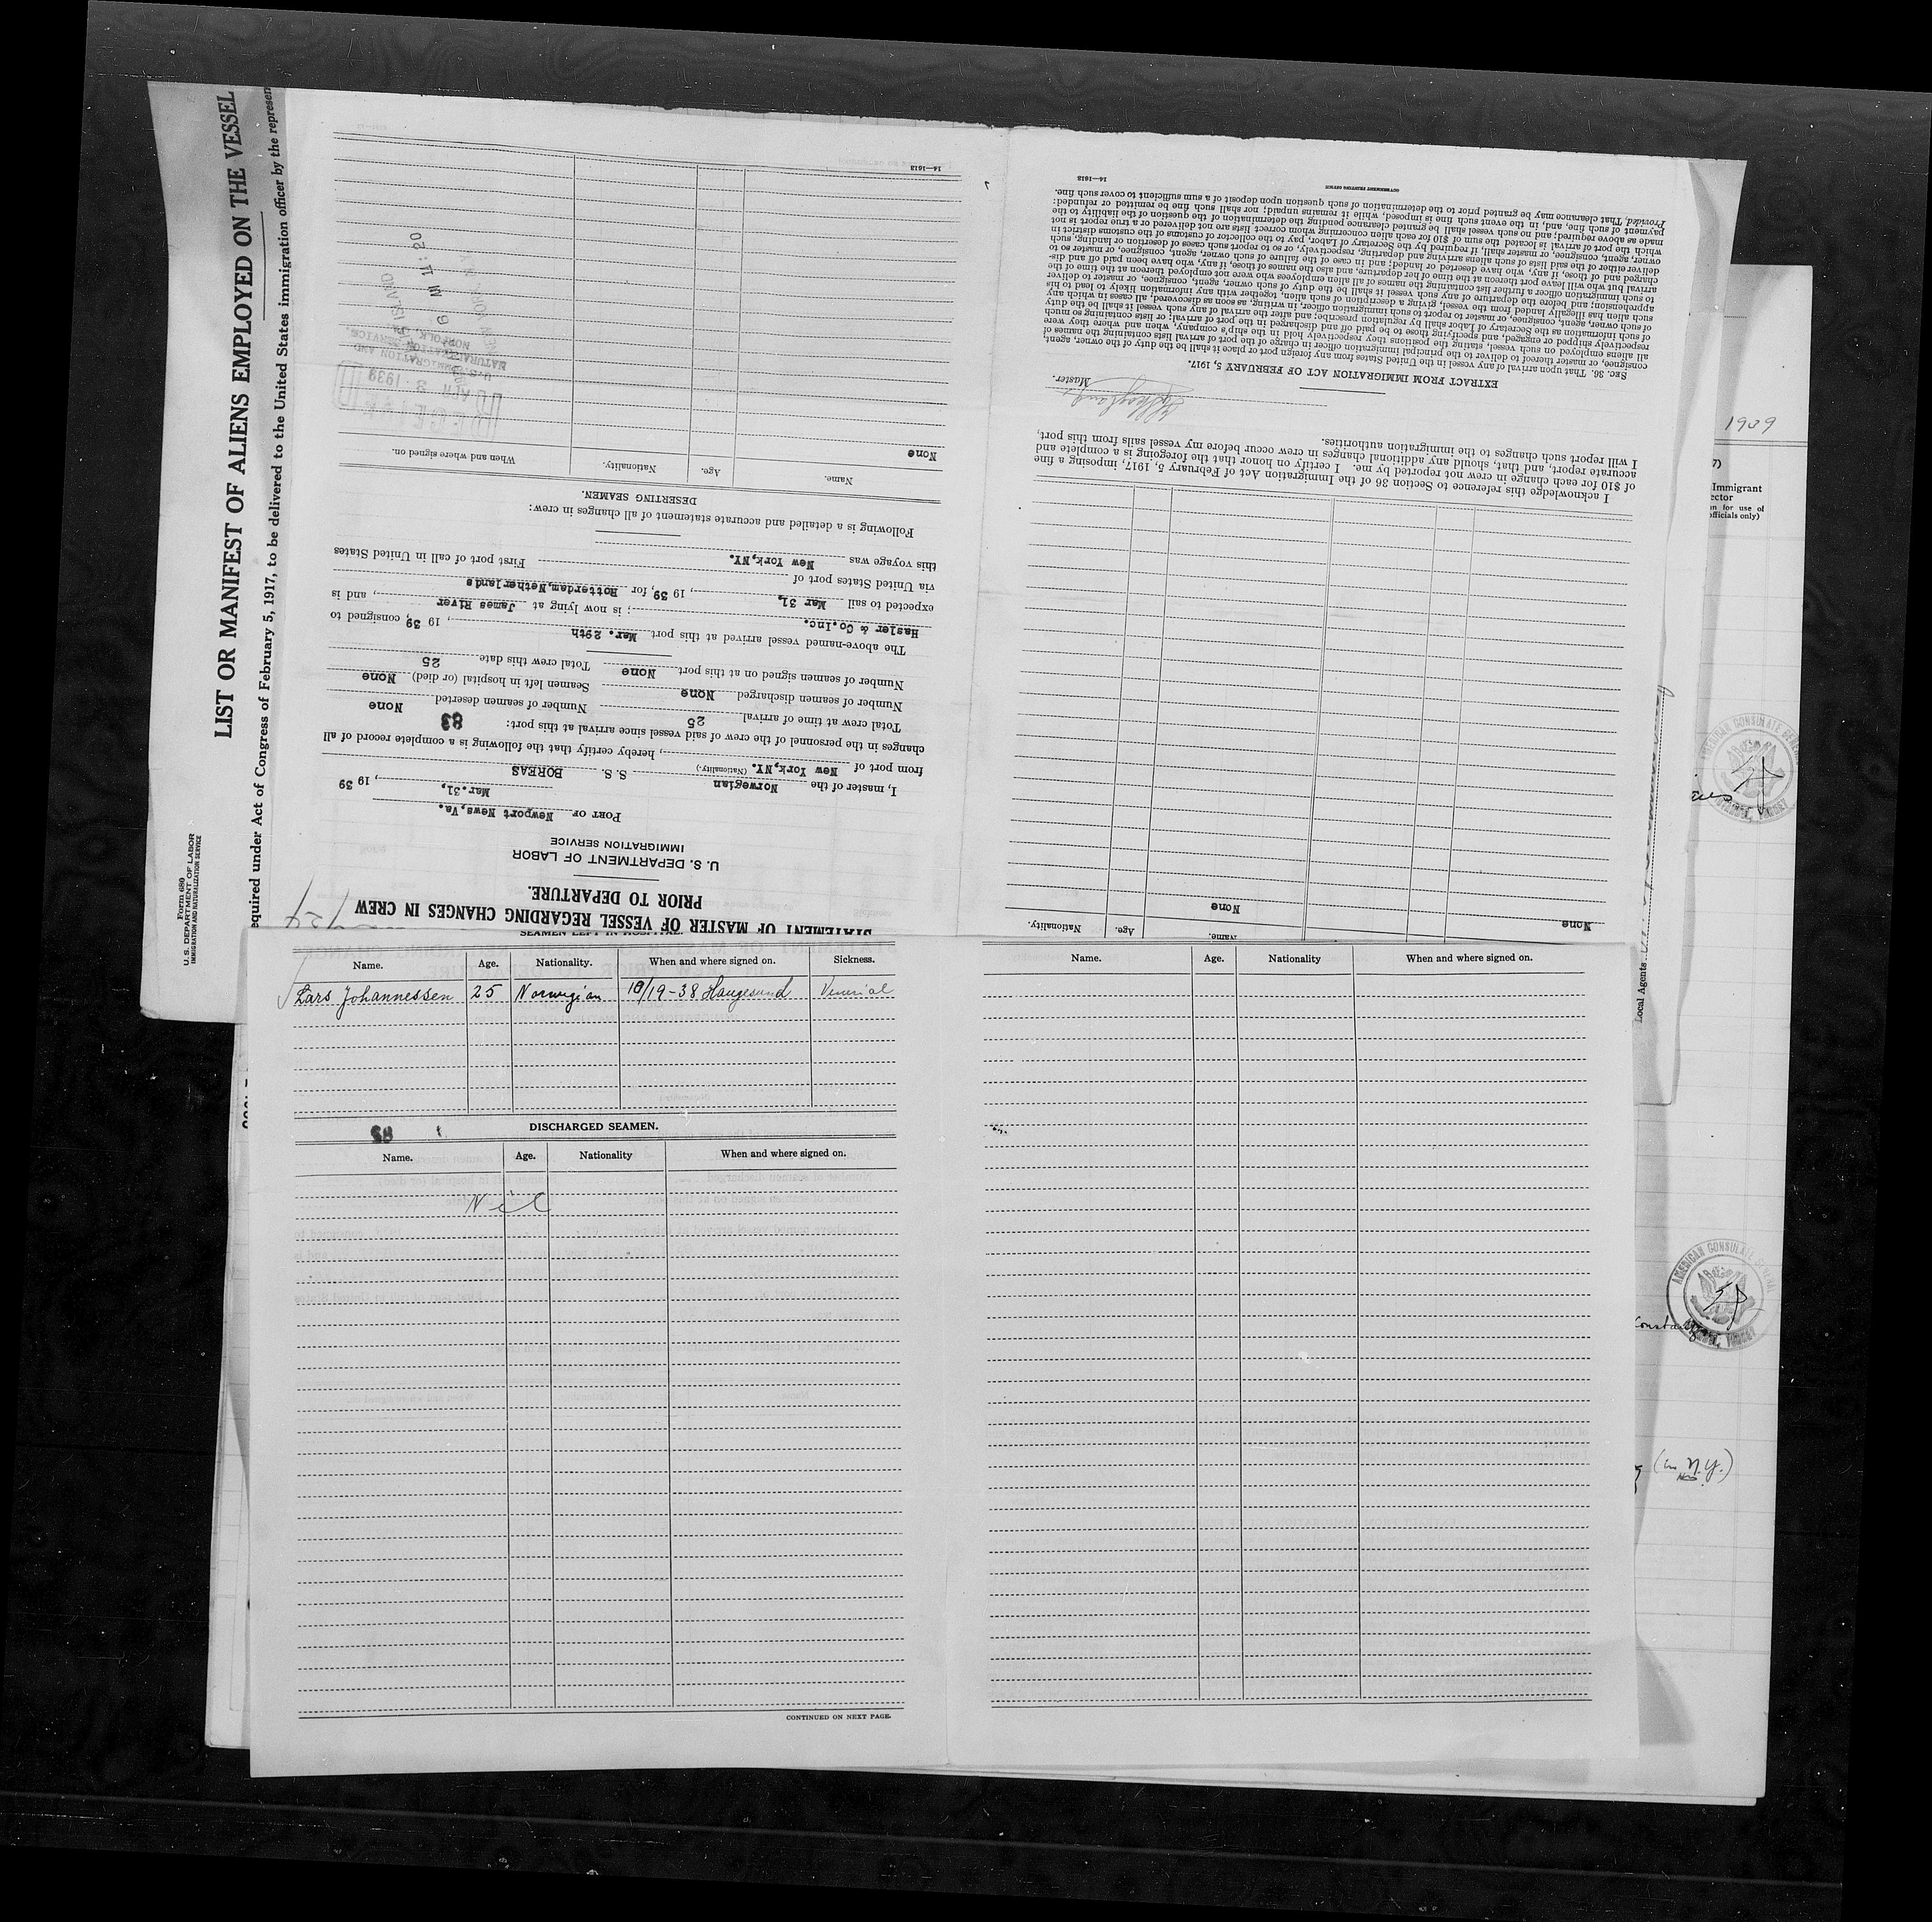 LIST OR MANIFEST OF ALIENS EMPLOYED ON THE VESSEL
equired under Act of Congress of February 5, 1917, to be delivered to the United States immigration officer by the represen
Form 680
U. S. DEPARTMENT OF LABOR
IMMIGRATION AND NATURALIZATION SERVICE
STATEMENT OF MASTER OF VESSEL REGARDING CHANGES IN CREW
PRIOR TO DEPARTURE.
U. S. DEPARTMENT OF LABOR
IMMIGRATION SERVICE
PORT OF Newport News, Va.
Mar. 31, 19 39
I, master of the Norwegian S. S. BOREAS
(Nationality.)
from port of New York, NY. , hereby certify that the following is a complete record of all
changes in the personnel of the crew of said vessel since arrival at this port: 83
Total crew at time of arrival 25 Number of seamen deserted None
Number of seamen discharged None Seamen left in hospital (or died) None
Number of seamen signed on at this port None Total crew this date 25
The above-named vessel arrived at this port Mar. 29th , 19 39, consigned to
Hasler & Co. Inc. ; is now lying at James River , and is
expected to sail Mar 31, , 19 39, for Rotterdam, Netherlands
via United States port of
this voyage was New York, NY. First port of call in United States
Following is a detailed and accurate statement of all changes in crew:
DESERTING SEAMEN.
Name. Age. Nationality. When and where signed on.
None
14—1618
RECEIVED
APR 3 1939
U. S. IMMIGRATION AND
NATURALIZATION SERVICE,
NORFOLK,
Name. Age. Nationality.
None
None
I acknowledge this reference to Section 36 of the Immigration Act of February 5, 1917, imposing a fine
of $10 for each change in crew not reported by me. I certify on honor that the foregoing is a complete and
accurate report, and that, should any additional changes in crew occur before my vessel sails from this port,
I will report such changes to the immigration authorities.
Master.
EXTRACT FROM IMMIGRATION ACT OF FEBRUARY 5, 1917.
SEC. 36. That upon arrival of any vessel in the United States from any foreign port or place it shall be the duty of the owner, agent,
consignee, or master thereof to deliver to the principal immigration officer in charge of the port of arrival lists containing the names of
all aliens employed on such vessel, stating the positions they respectively hold in the ship's company, when and where they were
respectively shipped or engaged, and specifying those to be paid off and discharged in the port of arrival; or lists containing so much
of such information as the Secretary of Labor shall by regulation prescribe; and after the arrival of any such vessel it shall be the duty
of such owner, agent, consignee, or master to report to such immigration officer, in writing, as soon as discovered, all cases in which any
such alien has illegally landed from the vessel, giving a description of such alien, together with any information likely to lead to his
apprehension; and before the departure of any such vessel it shall be the duty of such owner, agent, consignee, or master to deliver
to such immigration officer a further list containing the names of all alien employees who were not employed thereon at the time of the
arrival but who will leave port thereon at the time of her departure, and also the names of those, if any, who have been paid off and dis-
charged and of those, if any, who have deserted or landed; and in case of the failure of such owner, agent, consignee, or master to
deliver either of the said lists of such aliens arriving and departing, respectively, or so to report such cases of desertion or landing, such
owner, agent, consignee, or master shall, if required by the Secretary of Labor, pay to the collector of customs of the customs district in
which the port of arrival is located the sum of $10 for each alien concerning whom correct lists are not delivered or a true report is not
made as above required; and no such vessel shall be granted clearance pending the determination of the question of the liability to the
payment of such fine, and, in the event such fine is imposed, while it remains unpaid; nor shall such fine be remitted or refunded:
Provided, That clearance may be granted prior to the determination of such question upon deposit of a sum sufficient to cover such fine.
GOVERNMENT PRINTING OFFICE
14—1618
SEAMEN LEFT IN HOSPITAL.
Name. Age. Nationality. When and where signed on. Sickness.
Lars Johannessen 25 Norwegian 10/19-38 Haugesund Venerial
DISCHARGED SEAMEN.
Name. Age. Nationality When and where signed on.
Nil
CONTINUED ON NEXT PAGE.
Name. Age. Nationality When and where signed on.
1909
Immigrant
ector
officials only)
Local Agents
AMERICAN CONSULATE GENERAL
AMERICAN CONSULATE GENERAL
(in N.Y.)